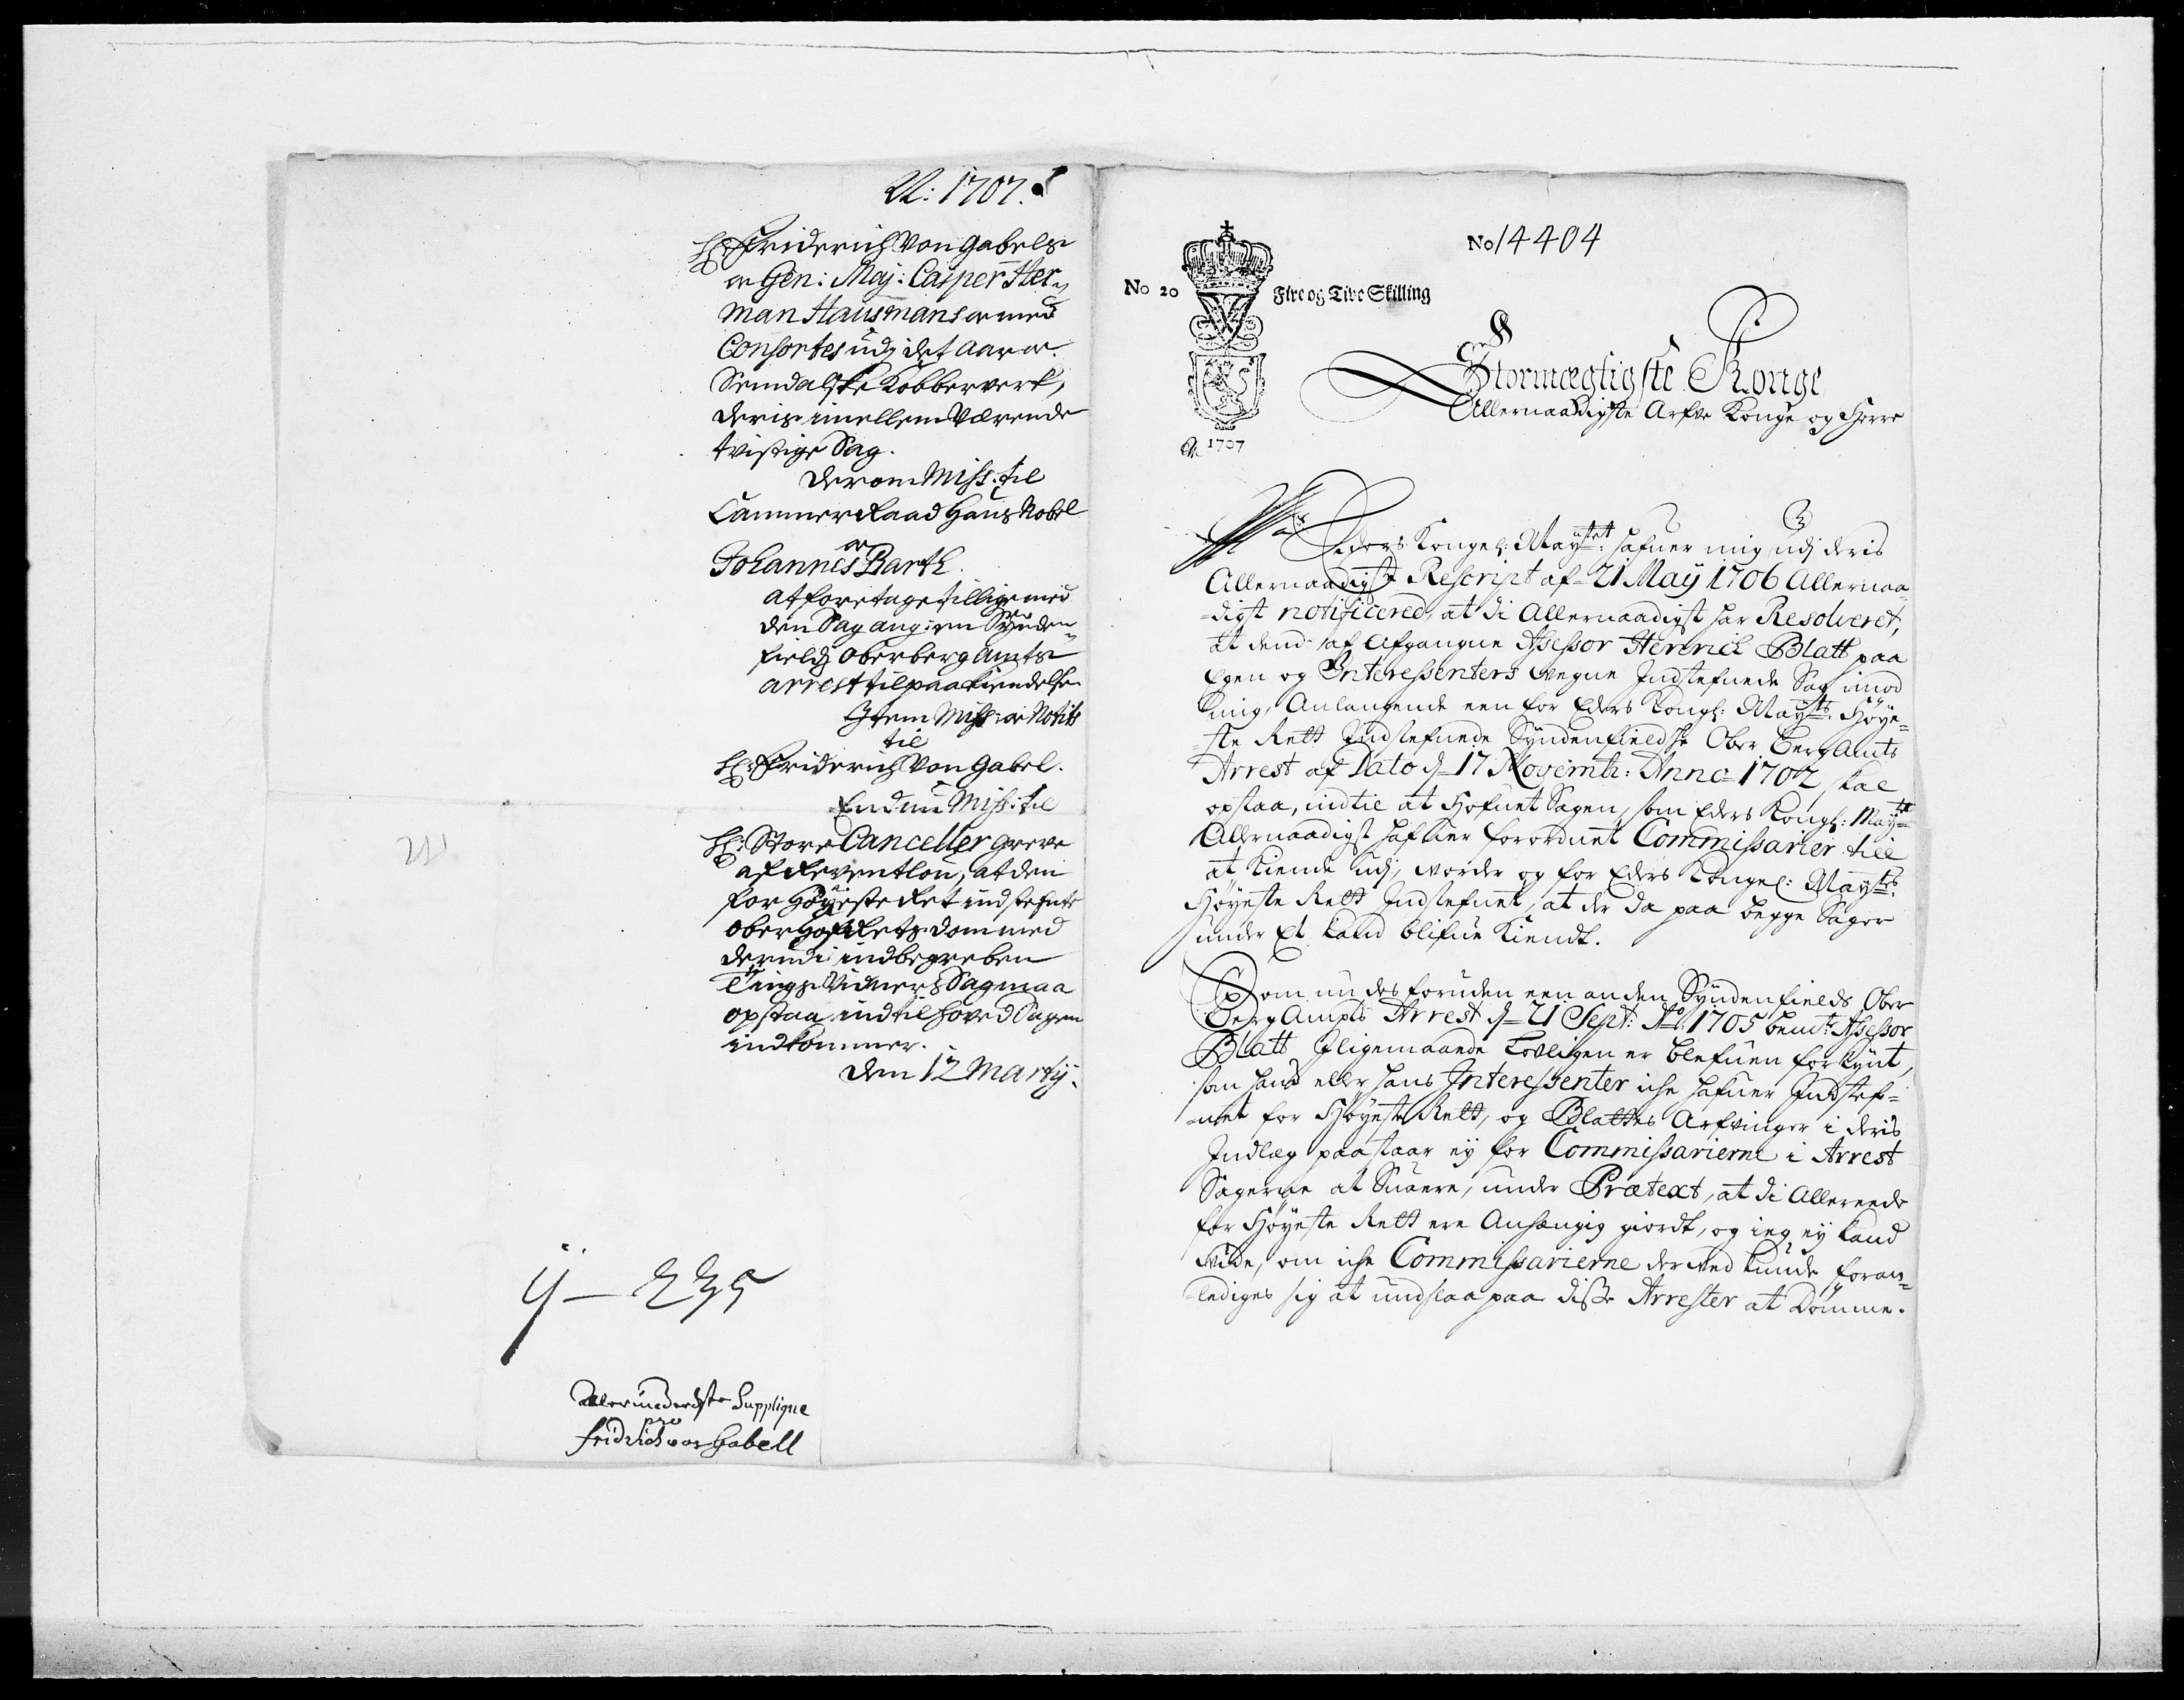 A: 1707.
H: Friderich Von Gabels
og Gen: Maj: Casper Her-
man Hausmans og med
Consortes udj det Aar og
Semdalske Kobberverk,
deris imellem Værende
tvistige Sag.
Derom Miss: til
Cammer Raad Hans Nobel
og
Johannes Barth.
at foretage tillige med
den Sag ang: en Synden-
fields Oberberg Amts
arrest til paakiendelse
Item Miss: og Notits
til
H: Friderich Von Gabel.
Endnu Miss: til
H: Store Canceller Greve
af Reventlou, at den
for Høyeste Ret indstefnte
Ober Hof Rets Dom med
derudi indbegreben
Tings Vidners Sag maa
opstaa indtil Hoved Sagen
indkommer.
Den 12 Martij.
y — 235
Allerunderdste Supplique
pro
fridrich von Gabell
No 14404
No 20
Fire og Tive Skilling
A. 1707
Stormægtigste Konge
Allernaadigste Arfve Konge og Herre
Eders Kongel: Maytet: hafuer mig udj deris
Allernaadigst Rescript af 21 May 1706 Allernaa-
-digst notificered, at di Allernaadigst har Resolveret,
at dend af Afgangne Assessor Henrich Blatt paa
Egen og Interessenters vegne Indstefnede Sag imod
mig, Anlangende een for Eders Kongl: Mayts: Høye-
-ste Rett Indstefnede Syndenfieldske Ober Berg Amts
Arrest af Dato d 17 Novembr: Anno 1702, skal
opstaa, indtil at Hofuet Sagen, som Eders Kongl: Maytt
Allernaadigst hafuer forordnet Commissarier till
at Kiende udj, vorder og for Eders Kongel: Mayts:
Høyeste Rett Indstefnet, at der da paa begge Sager
under Et kand blifue Kiendt.
Som nu des foruden een anden Syndenfields Ober
Berg Ampts Arrest d 21 Sept: Ao: 1705 bemte Assessor
Blatt Iligemaade Lovligen er blefuen forkynt,
som hand eller hans Interessenter iche hafuer Indstef-
-net for Høyeste Rett, og Blattes Arfvinger i deris
Indlæg paastaar ey for Commissarierne i Arrest
Sagerne at Suare, under Prætext, at di Allereede
for Høyeste Rett ere Anhængig giordt, og ieg ey kand
vide, om iche Commissarierne der ved kunde foran-
-lediges sig at undslaa paa disse Arrester at Dømme.